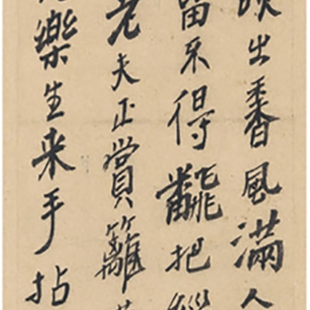 吹出香風滿人
留不得飜把
老夫正賞籬
樂生来手拈